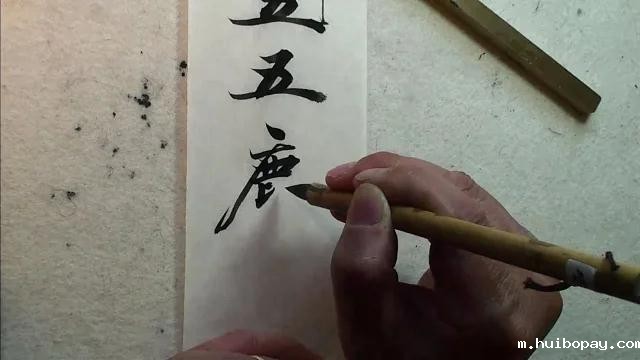 五
五
m.huibopay.com